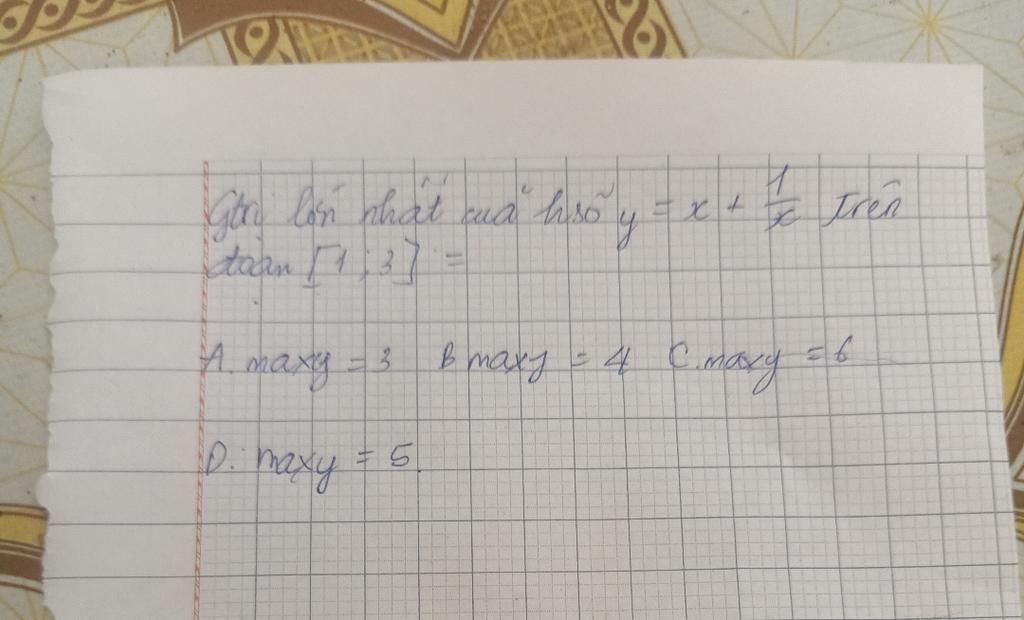 Gtrị lớn nhất của hsố y = x + 1/x trên
đoạn [1; 3] =
A. maxy = 3 B maxy = 4 C. maxy = 6
D. maxy = 5.